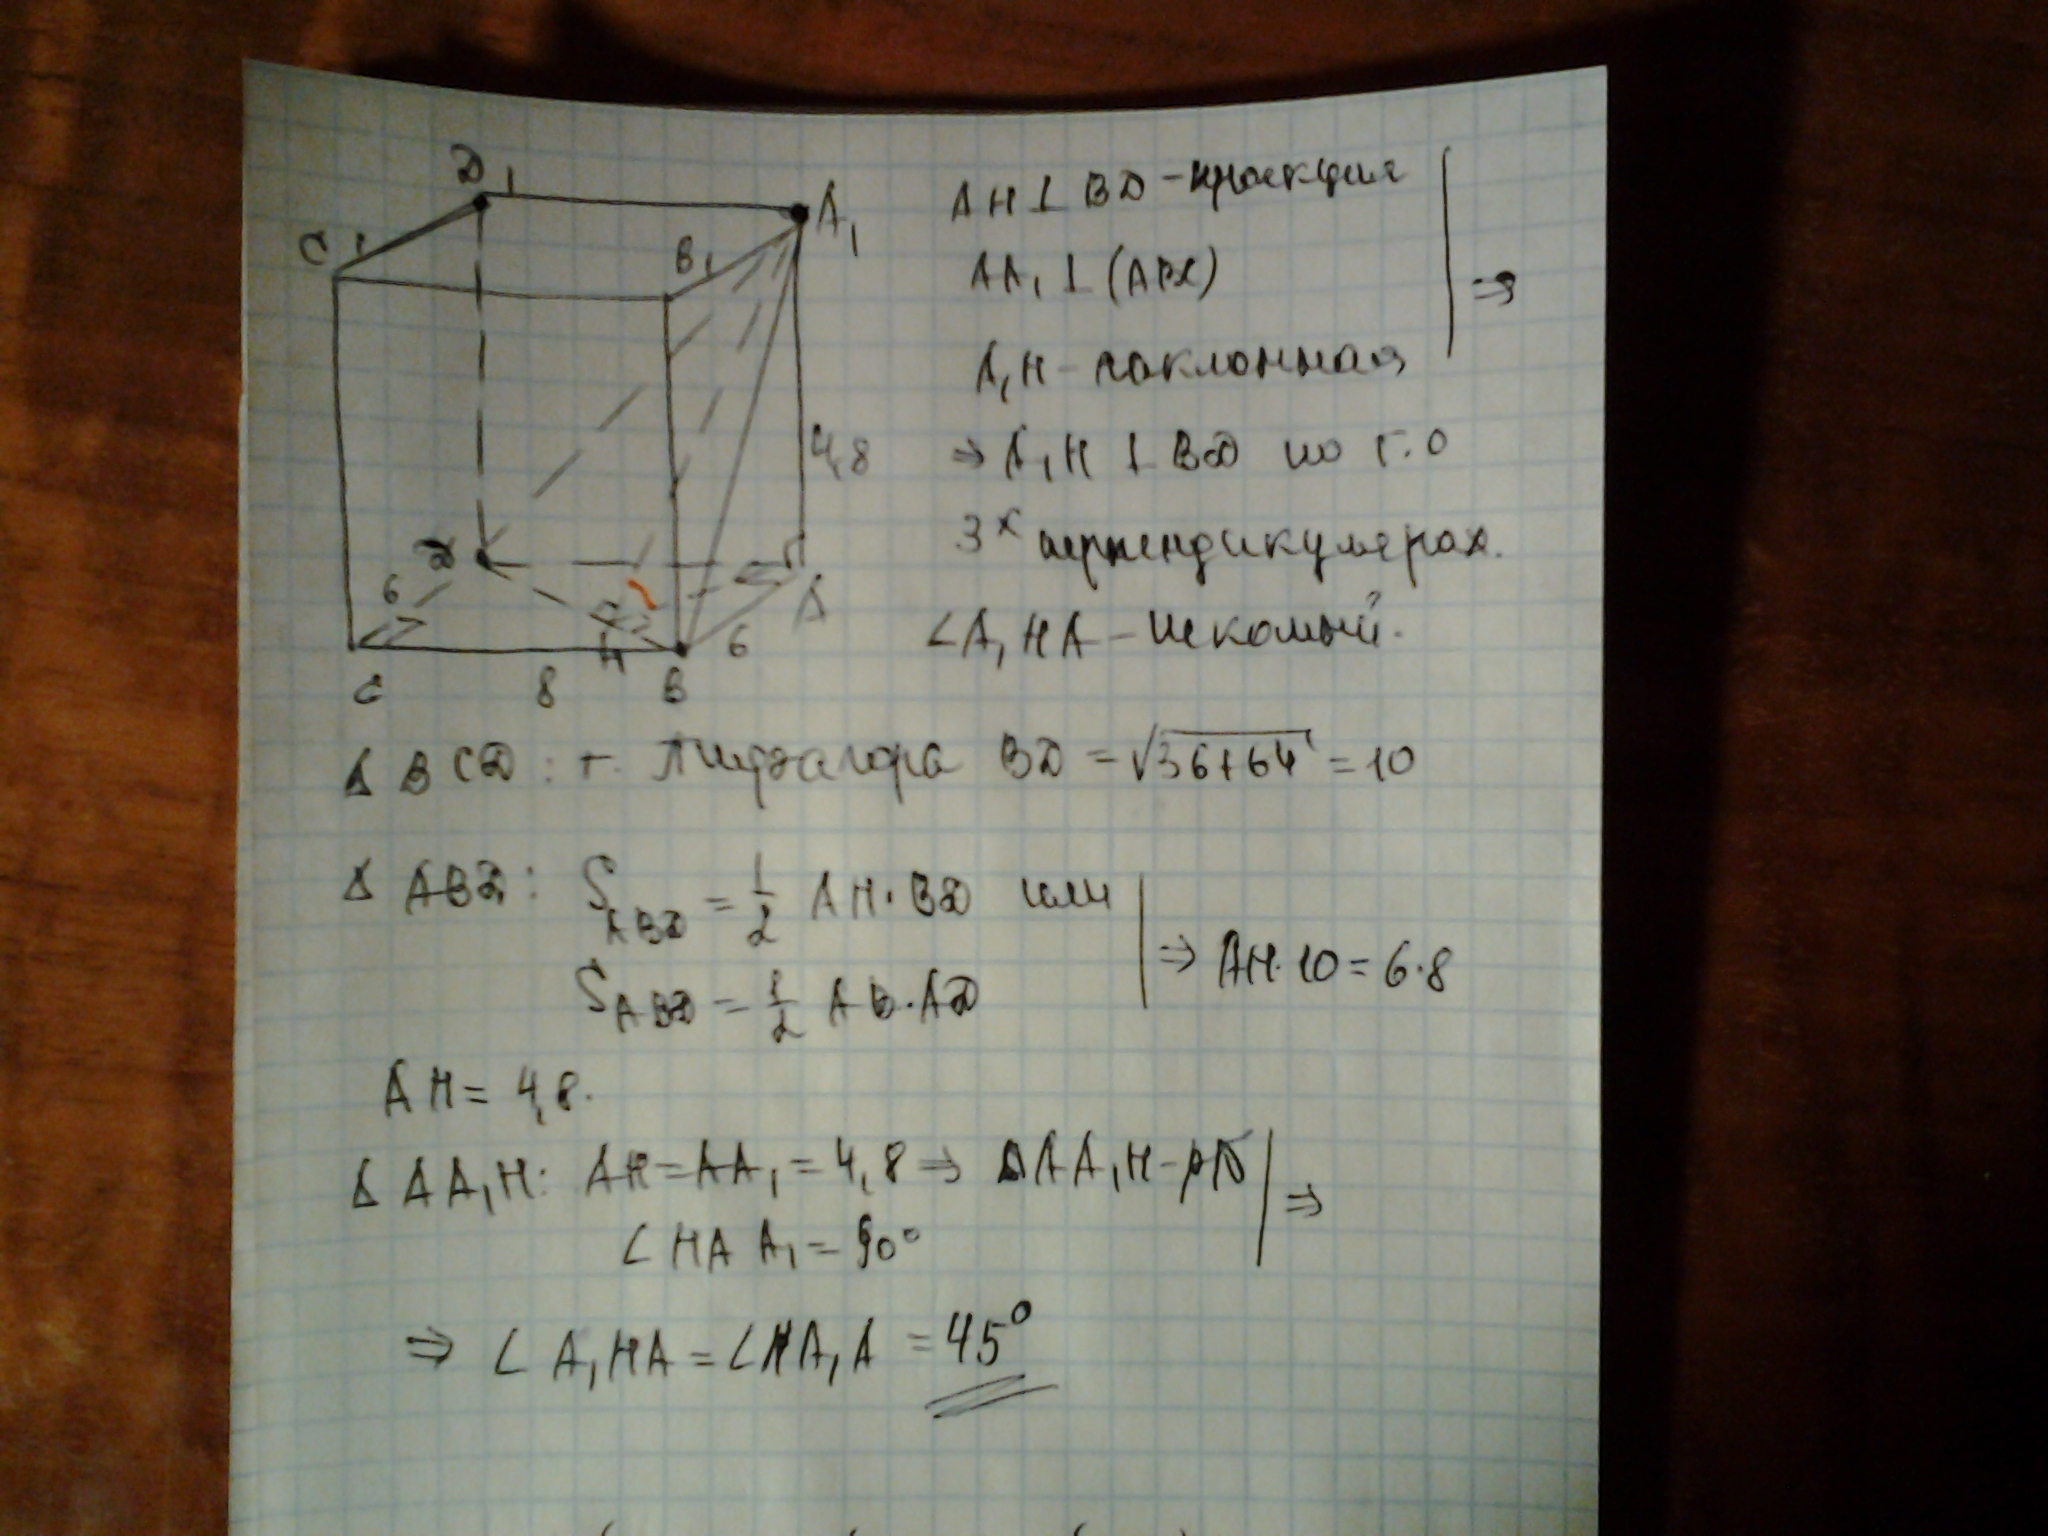 D₁
A₁
C₁
B₁
4,8
D
A
6
H
6
C
8
B
AH ⊥ BD - проекция
AA₁ ⊥ (ABC)
A₁H - наклонная
⇒
⇒ A₁H ⊥ BD по т. о
3х перпендикулярах.
∠A₁HA - искомый.
Δ BCD: т. Пифагора BD = √36+64 = 10
Δ ABD: S ABD = 1/2 AH · BD или
S ABD = 1/2 AB · AD
⇒ AH · 10 = 6 · 8
AH = 4,8.
Δ AA₁H: AH = AA₁ = 4,8 ⇒ Δ AA₁H - р/б
∠HAA₁ = 90°
⇒
⇒ ∠A₁HA = ∠HA₁A = 45°